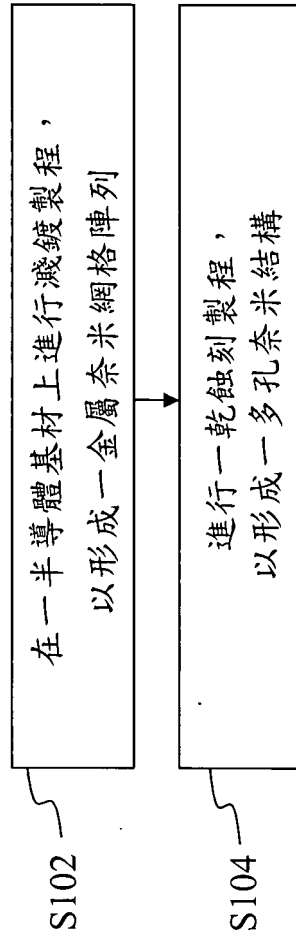 在一半導體基材上進行濺鍍製程，
以形成一金屬奈米網格陣列
S102
進行一乾蝕刻製程，
以形成一多孔奈米結構
S104